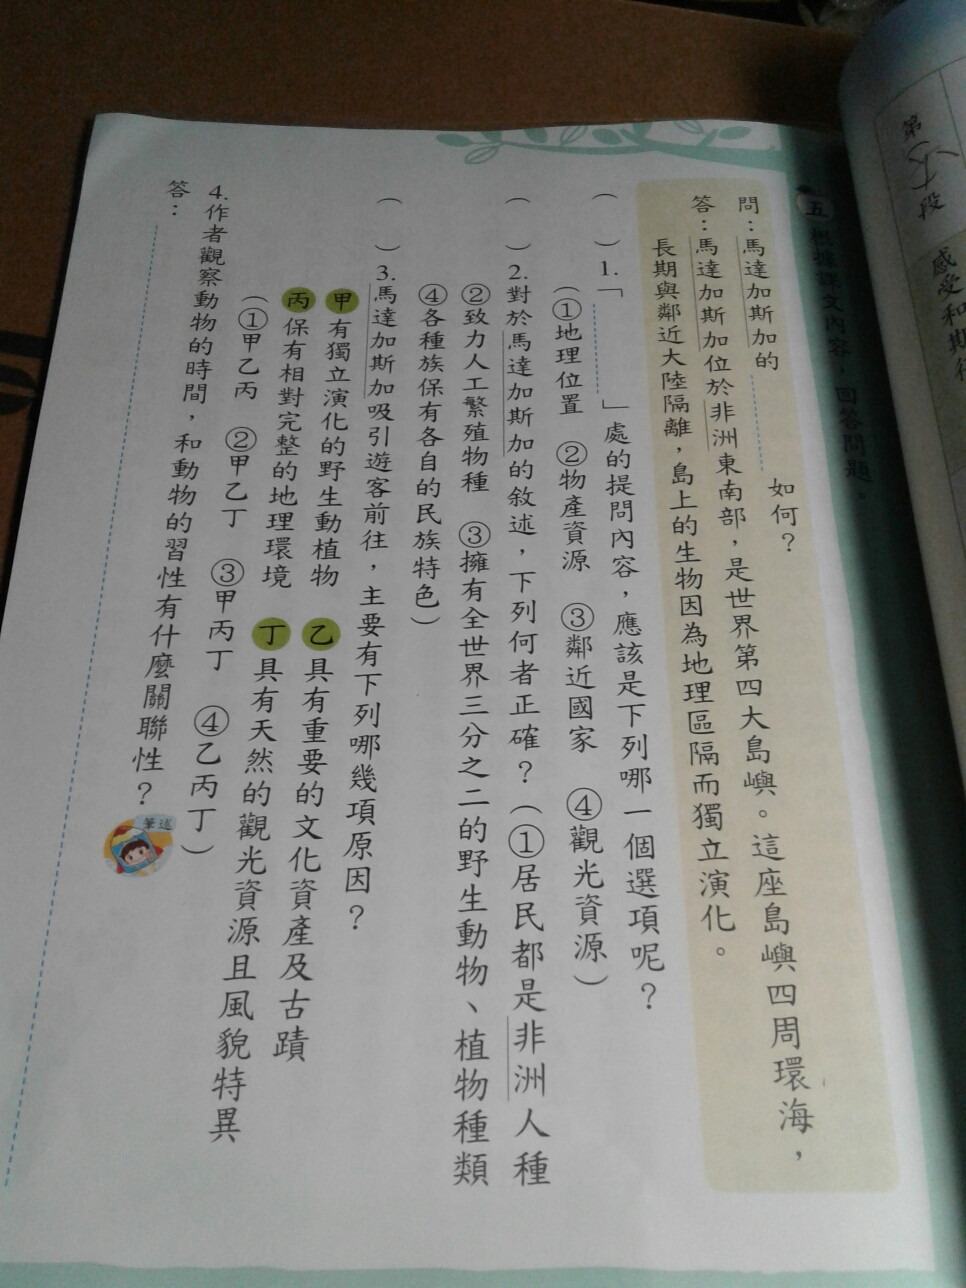 五 根據課文內容，回答問題。
問：馬達加斯加的　　　　如何？
答：馬達加斯加位於非洲東南部，是世界第四大島嶼。這座島嶼四周環海，
長期與鄰近大陸隔離，島上的生物因為地理區隔而獨立演化。
（　）1.「　　　　」處的提問內容，應該是下列哪一個選項呢？
（①地理位置　②物產資源　③鄰近國家　④觀光資源）
（　）2.對於馬達加斯加的敘述，下列何者正確？（①居民都是非洲人種
②致力人工繁殖物種　③擁有全世界三分之二的野生動物、植物種類
④各種族保有各自的民族特色）
（　）3.馬達加斯加吸引遊客前往，主要有下列哪幾項原因？
甲有獨立演化的野生動植物　乙具有重要的文化資產及古蹟
丙保有相對完整的地理環境　丁具有天然的觀光資源且風貌特異
（①甲乙丙　②甲乙丁　③甲丙丁　④乙丙丁）
4.作者觀察動物的時間，和動物的習性有什麼關聯性？
筆述
答：
第
段
感受和期待